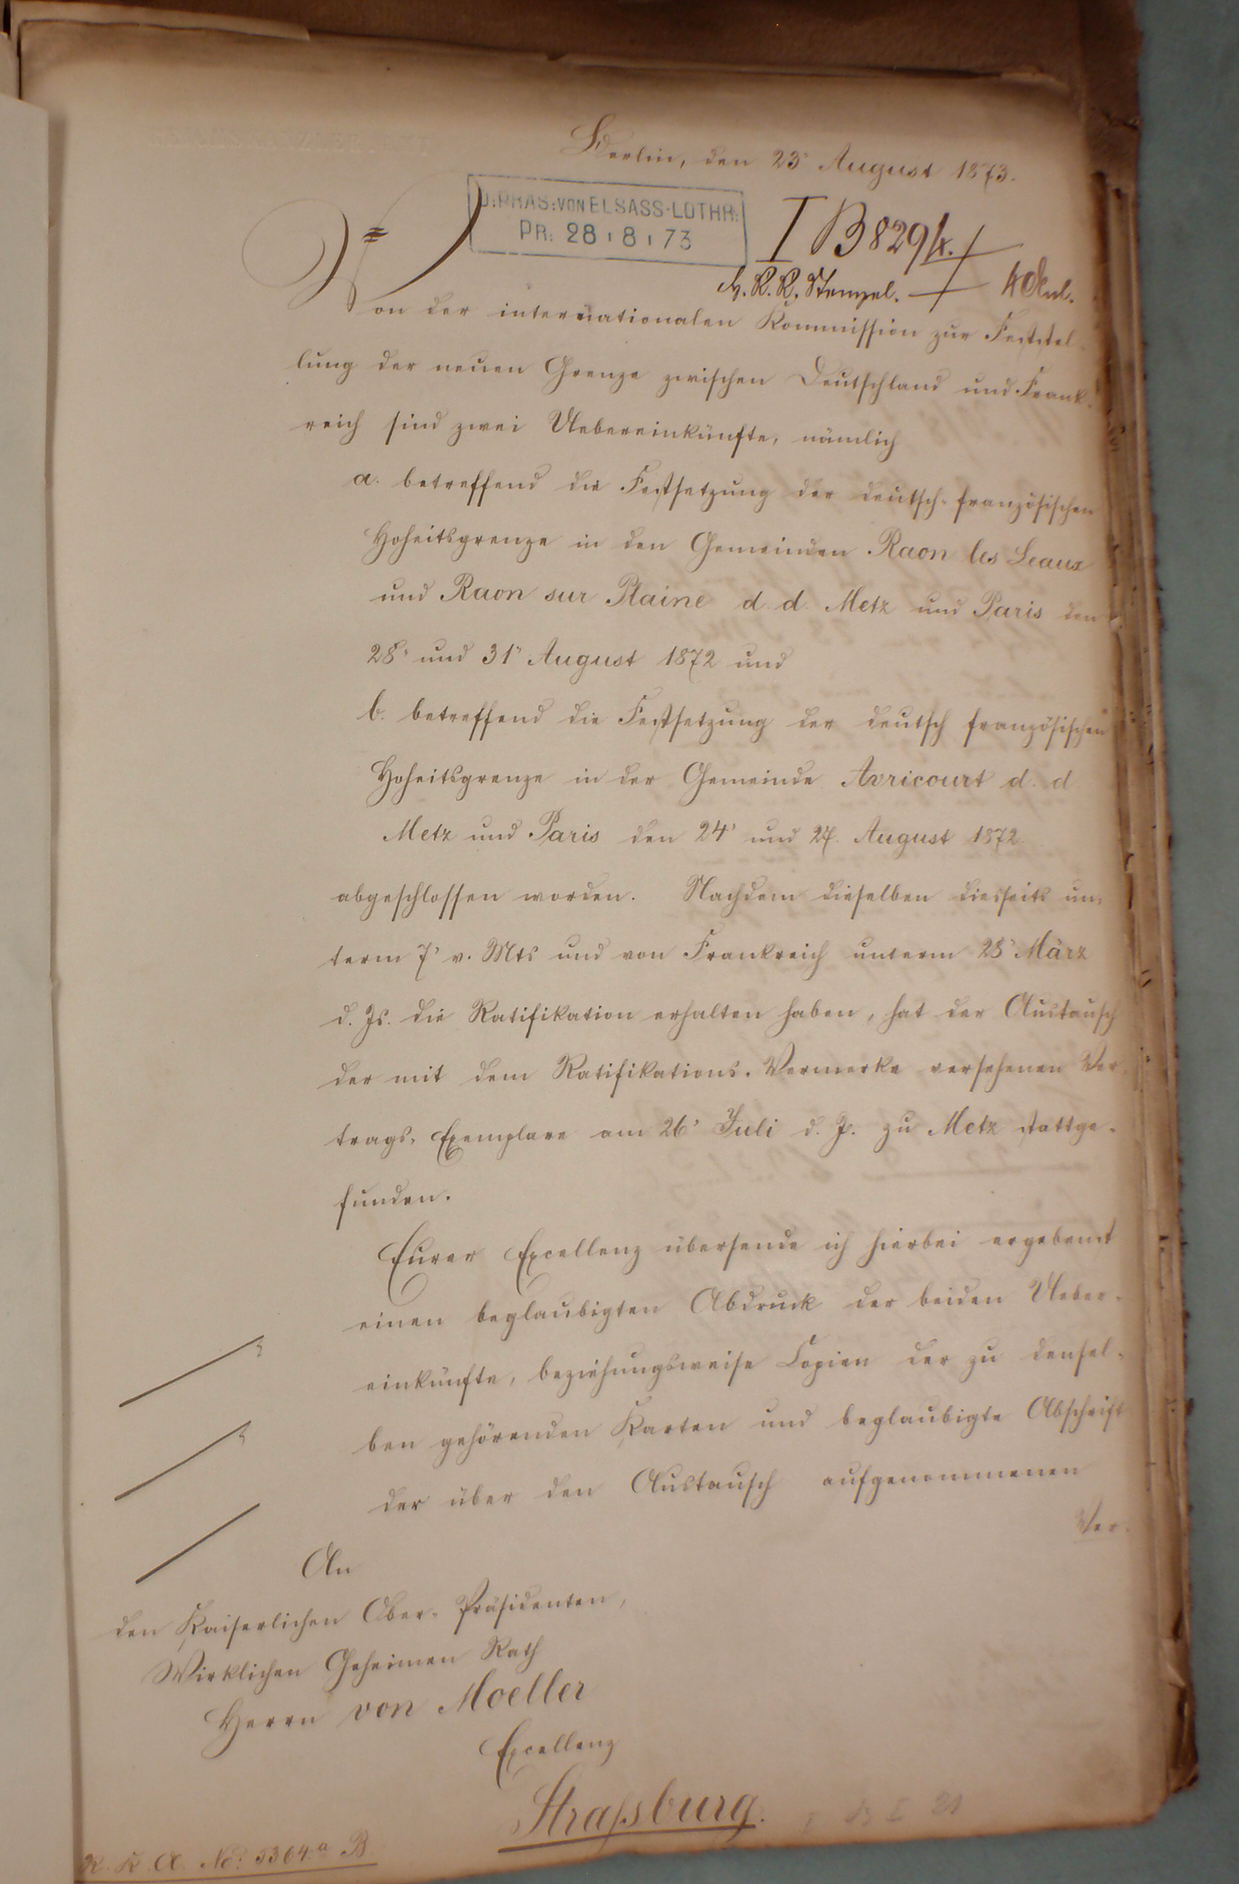 Berlin, den 23' August 1873.
O: PRÄS: VON ELSASS-LOTHR:
PR: 28 8 73
I B 8294.
H. R. R. Stempel. 4 Anl.
Von der internationalen Kommission zur Feststel-
lung der neuen Grenze zwischen Deutschland und Frank-
reich sind zwei Uebereinkünfte, nämlich
a. betreffend die Festsetzung der deutsch-französischen
Hoheitsgrenze in den Gemeinden Raon les Leaux
und Raon sur Plaine d. d. Metz und Paris den
28' und 31' August 1872 und
b. betreffend die Festsetzung der deutsch französischen
Hoheitsgrenze in der Gemeinde Avricourt d. d.
Metz und Paris den 24' und 27. August 1872.
abgeschlossen worden. Nachdem dieselben diesseits un-
term 7' v. Mts und von Frankreich unterm 28' März
d. Js. die Ratifikation erhalten haben, hat der Austausch
der mit dem Ratifikations-Vermerke versehenen Ver-
trags-Exemplare am 26' Juli d. J. zu Metz stattge-
funden.
Eurer Excellenz übersende ich hierbei ergebenst
einen beglaubigten Abdruck der beiden Ueber-
einkünfte, beziehungsweise Copien der zu densel-
ben gehörenden Karten und beglaubigte Abschrift
der über den Austausch aufgenommenen
Ver-
An
den Kaiserlichen Ober-Präsidenten,
Wirklichen Geheimen Rath
Herrn von Moeller
Excellenz
Straßburg.
R. K. A. No: 5364a B